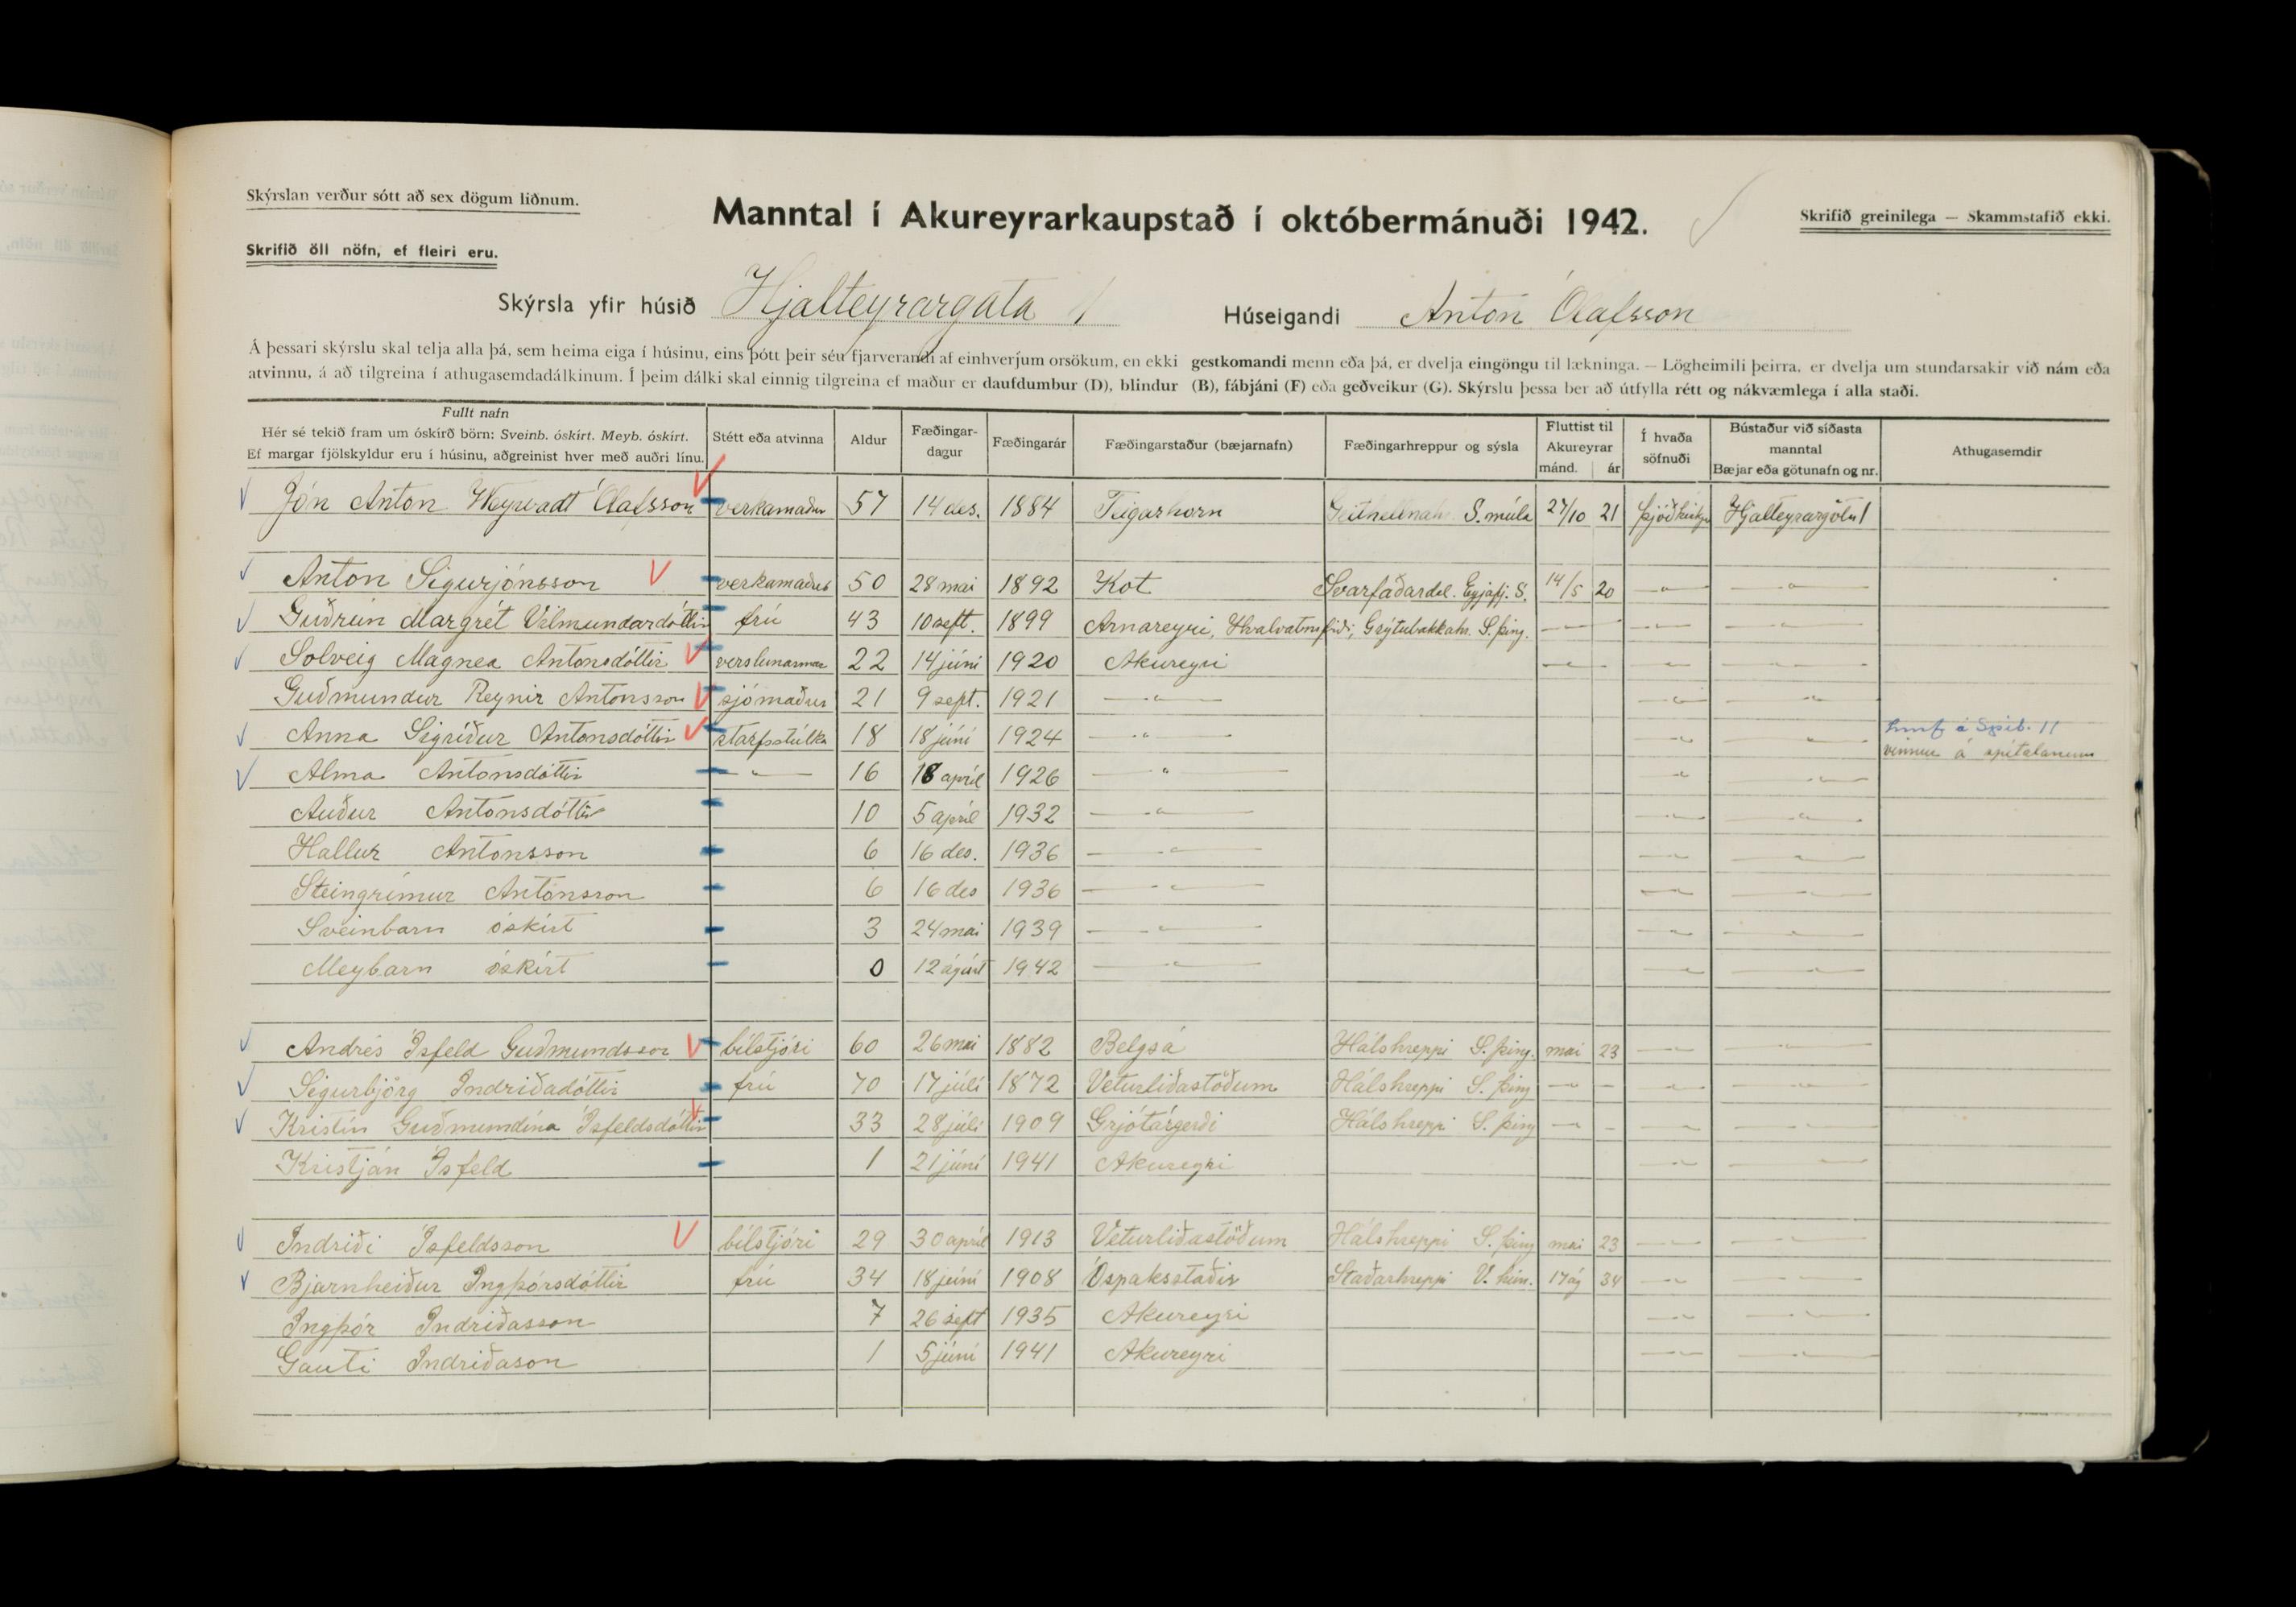 Skýrslan verður sótt að sex dögum liðnum.
Manntal í Akureyrarkaupstað í októbermánuði 1942.
Skrifið greinilega — Skammstafið ekki.
Skrifið öll nöfn, ef fleiri eru.
Skýrsla yfir húsið Hjalteyrargata 1 Húseigandi Anton Ólafsson
Á þessari skýrslu skal telja alla þá, sem heima eiga í húsinu, eins þótt þeir séu fjarverandi af einhverjum orsökum, en ekki gestkomandi menn eða þá, er dvelja eingöngu til lækninga. — Lögheimili þeirra, er dvelja um stundarsakir við nám eða
atvinnu, á að tilgreina í athugasemdadálkinum. Í þeim dálki skal einnig tilgreina ef maður er daufdumbur (D), blindur (B), fábjáni (F) eða geðveikur (G). Skýrslu þessa ber að útfylla rétt og nákvæmlega í alla staði.
Fullt nafn
Hér sé tekið fram um óskírð börn: Sveinb. óskírt. Meyb. óskírt.
Ef margar fjölskyldur eru í húsinu, aðgreinist hver með auðri línu.
Stétt eða atvinna
Aldur
Fæðingar-
dagur
Fæðingarár
Fæðingarstaður (bæjarnafn)
Fæðingarhreppur og sýsla
Fluttist til
Akureyrar
mánd. ár
Í hvaða
söfnuði
Bústaður við síðasta
manntal
Bæjar eða götunafn og nr.
Athugasemdir
Jón Anton Weywadt Ólafsson verkamaður 57 14 des. 1884 Teigarhorn S. múla 27/10 21 Hjalteyrargötu 1
Anton Sigurjónsson verkamaður 50 28 mai 1892 Kot Svarfaðardal. Eyjafj. S. 14/5 20 — " — — " —
Guðrún Margrét Vilmundardóttir frú 43 10 sept. 1899 Arnareyri, Hvalvatnsfirði, Grýtubakkahr. S. þing. — — — " — — " —
Solveig Magnea Antonsdóttir verslunarmær 22 14 júní 1920 Akureyri — — — " — — " —
Guðmundur Reynir Antonsson sjómaður 21 9 sept. 1921 — " — — " — — " —
Anna Sigríður Antonsdóttir starfsstúlka 18 18 júní 1924 — " — — " — — " — vinnur á spítalanum
Alma Antonsdóttir — " — 16 18 apríl 1926 — " — — " — — " —
Auður Antonsdóttir 10 5 apríl 1932 — " — — " — — " —
Hallur Antonsson 6 16 des. 1936 — " — — " — — " —
Steingrímur Antonsson 6 16 des 1936 — " — — " — — " —
Sveinbarn óskírt 3 24 mai 1939 — " — — " — — " —
Meybarn óskírt 0 12 ágúst 1942 — " — — " — — " —
Andrés Ísfeld Guðmundsson bílstjóri 60 26 mai 1882 Belgsá Hálshreppi S. þing. mai 23 — " — — " —
Sigurbjörg Indriðadóttir frú 70 17 júlí 1872 Veturliðastöðum Hálshreppi S. þing — " — - — " — — " —
Kristín Guðmundína Ísfeldsdóttir 33 28 júlí 1909 Grjótárgerði Hálshreppi S. þing — " — - — " — — " —
Kristján Ísfeld 1 21 júní 1941 Akureyri — " — — " —
Indriði Ísfeldsson bílstjóri 29 30 apríl 1913 Veturliðastöðum Hálshreppi S. þing mai 23 — " — — " —
Bjarnheiður Ingþórsdóttir frú 34 18 júní 1908 Óspaksstaðir Staðarhreppi V. hún. 17 ág 34 — " — — " —
Ingþór Indriðasson 7 26 sept 1935 Akureyri — " — — " —
Gauti Indriðason 1 5 júní 1941 Akureyri — " — — " —